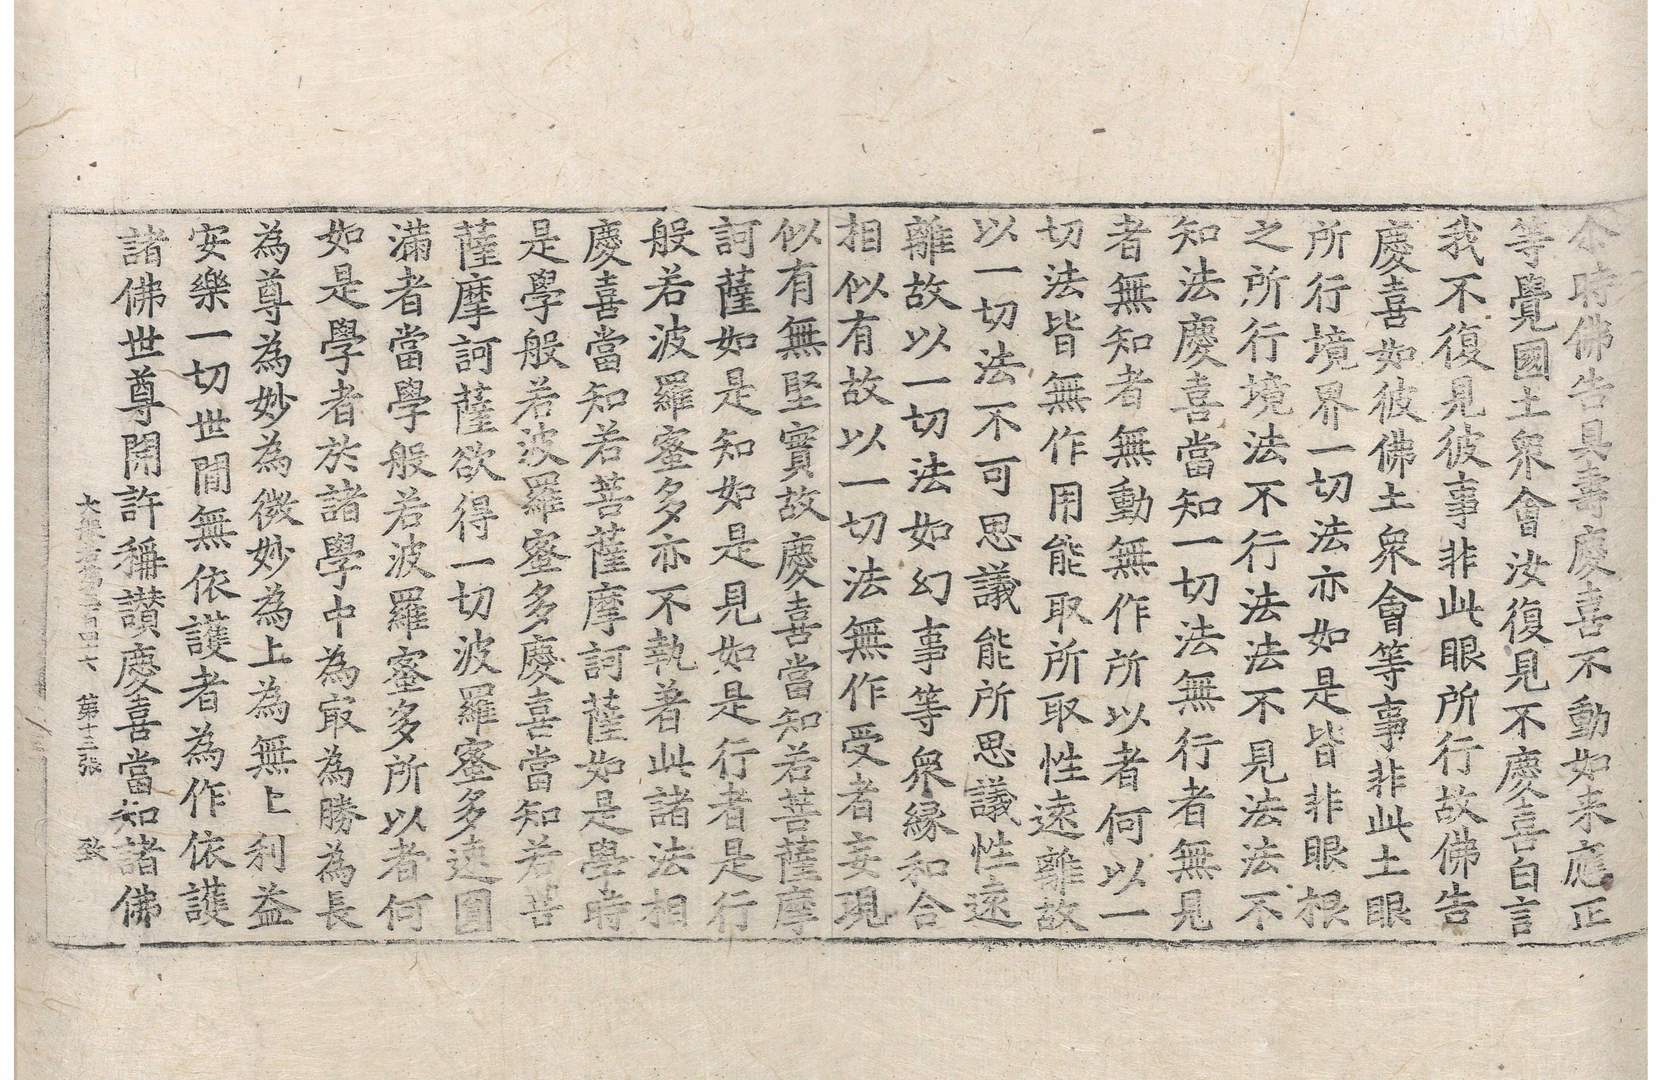 尒時佛告具壽慶喜不動如来應正
等覺國土衆會汝復見不慶喜白言
我不復見彼事非此眼所行故佛告
慶喜如彼佛土衆會等事非此土眼
所行境界一切法亦如是皆非眼根
之所行境法不行法法不見法法不
知法慶喜當知一切法無行者無見
者無知者無動無作所以者何以一
切法皆無作用能取所取性遠離故
以一切法不可思議能所思議性遠
離故以一切法如幻事等衆緣和合
相似有故以一切法無作受者妄現
似有無堅實故慶喜當知若菩薩摩
訶薩如是知如是見如是行者是行
般若波羅蜜多亦不執著此諸法相
慶喜當知若菩薩摩訶薩如是學時
是學般若波羅蜜多慶喜當知若菩
薩摩訶薩欲得一切波羅蜜多速圓
滿者當學般若波羅蜜多所以者何
如是學者於諸學中為㝡為勝為長
為尊為妙為微妙為上為無上利益
安樂一切世間無依護者為作依護
諸佛世尊開許稱讃慶喜當知諸佛
大般若第三百四十六 第十三張 致